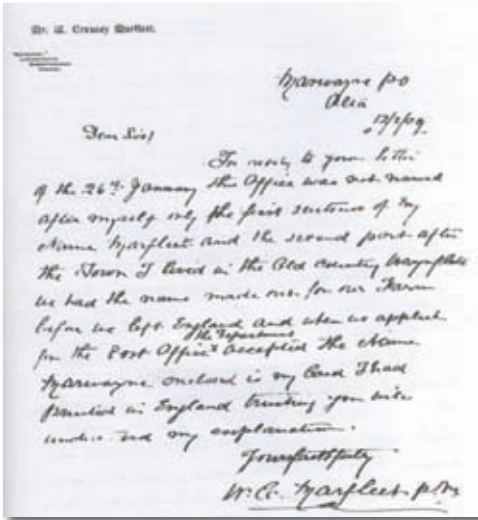 Mr. W. Cressey Marfleet.
Marwayne P.O
Alta
12/2/09
Dear Sir/
In reply to your letter
of the 26th January the Office was not named
after myself only the first sentence of my
Name Marfleet and the second part after
the Town I lived in the Old Country Waynfleet
we had the name made out for our Farm
before we left England and when we applied
for the Post Office the Department accepted the Name
Marwayne enclosed is my Card I had
printed in England trusting you will
understand my explanation.
Yours faithfully
W. C. Marfleet P.M.